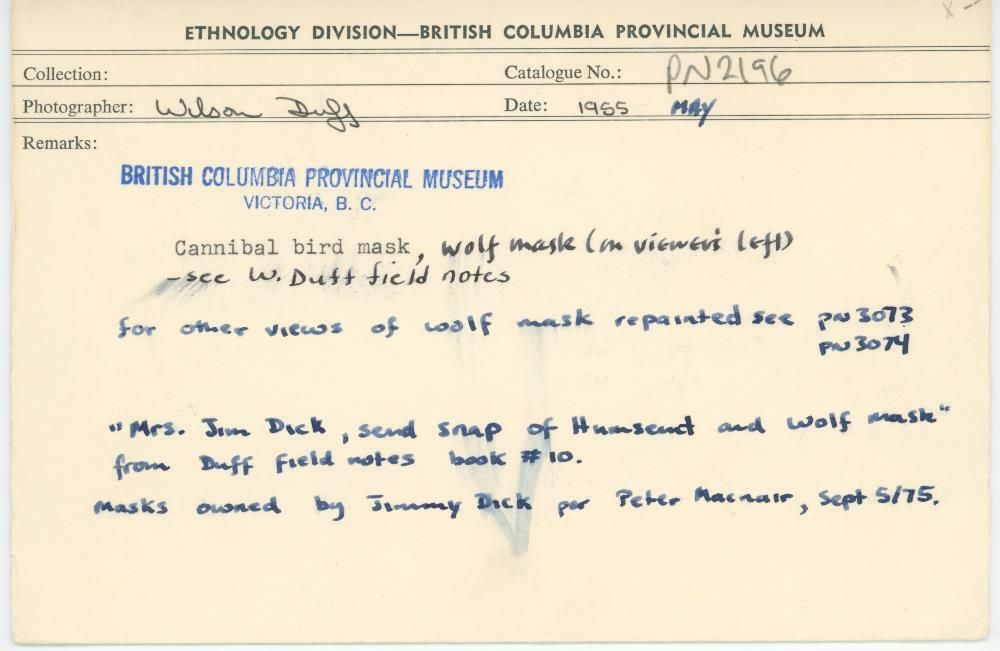 ETHNOLOGY DIVISION—BRITISH COLUMBIA PROVINCIAL MUSEUM
Collection: Catalogue No.: PN2196
Photographer: Wilson Duff Date: 1955 MAY
Remarks:
BRITISH COLUMBIA PROVINCIAL MUSEUM
VICTORIA, B. C.
Cannibal bird mask, wolf mask (on viewers left)
-see W. Duff field notes
for other views of wolf mask repainted see PN 3073
PN 3074
"Mrs. Jim Dick, send snap of Humsemt and Wolf mask"
from Duff field notes book #10.
Masks owned by Jimmy Dick per Peter Macnair, Sept 5/75.